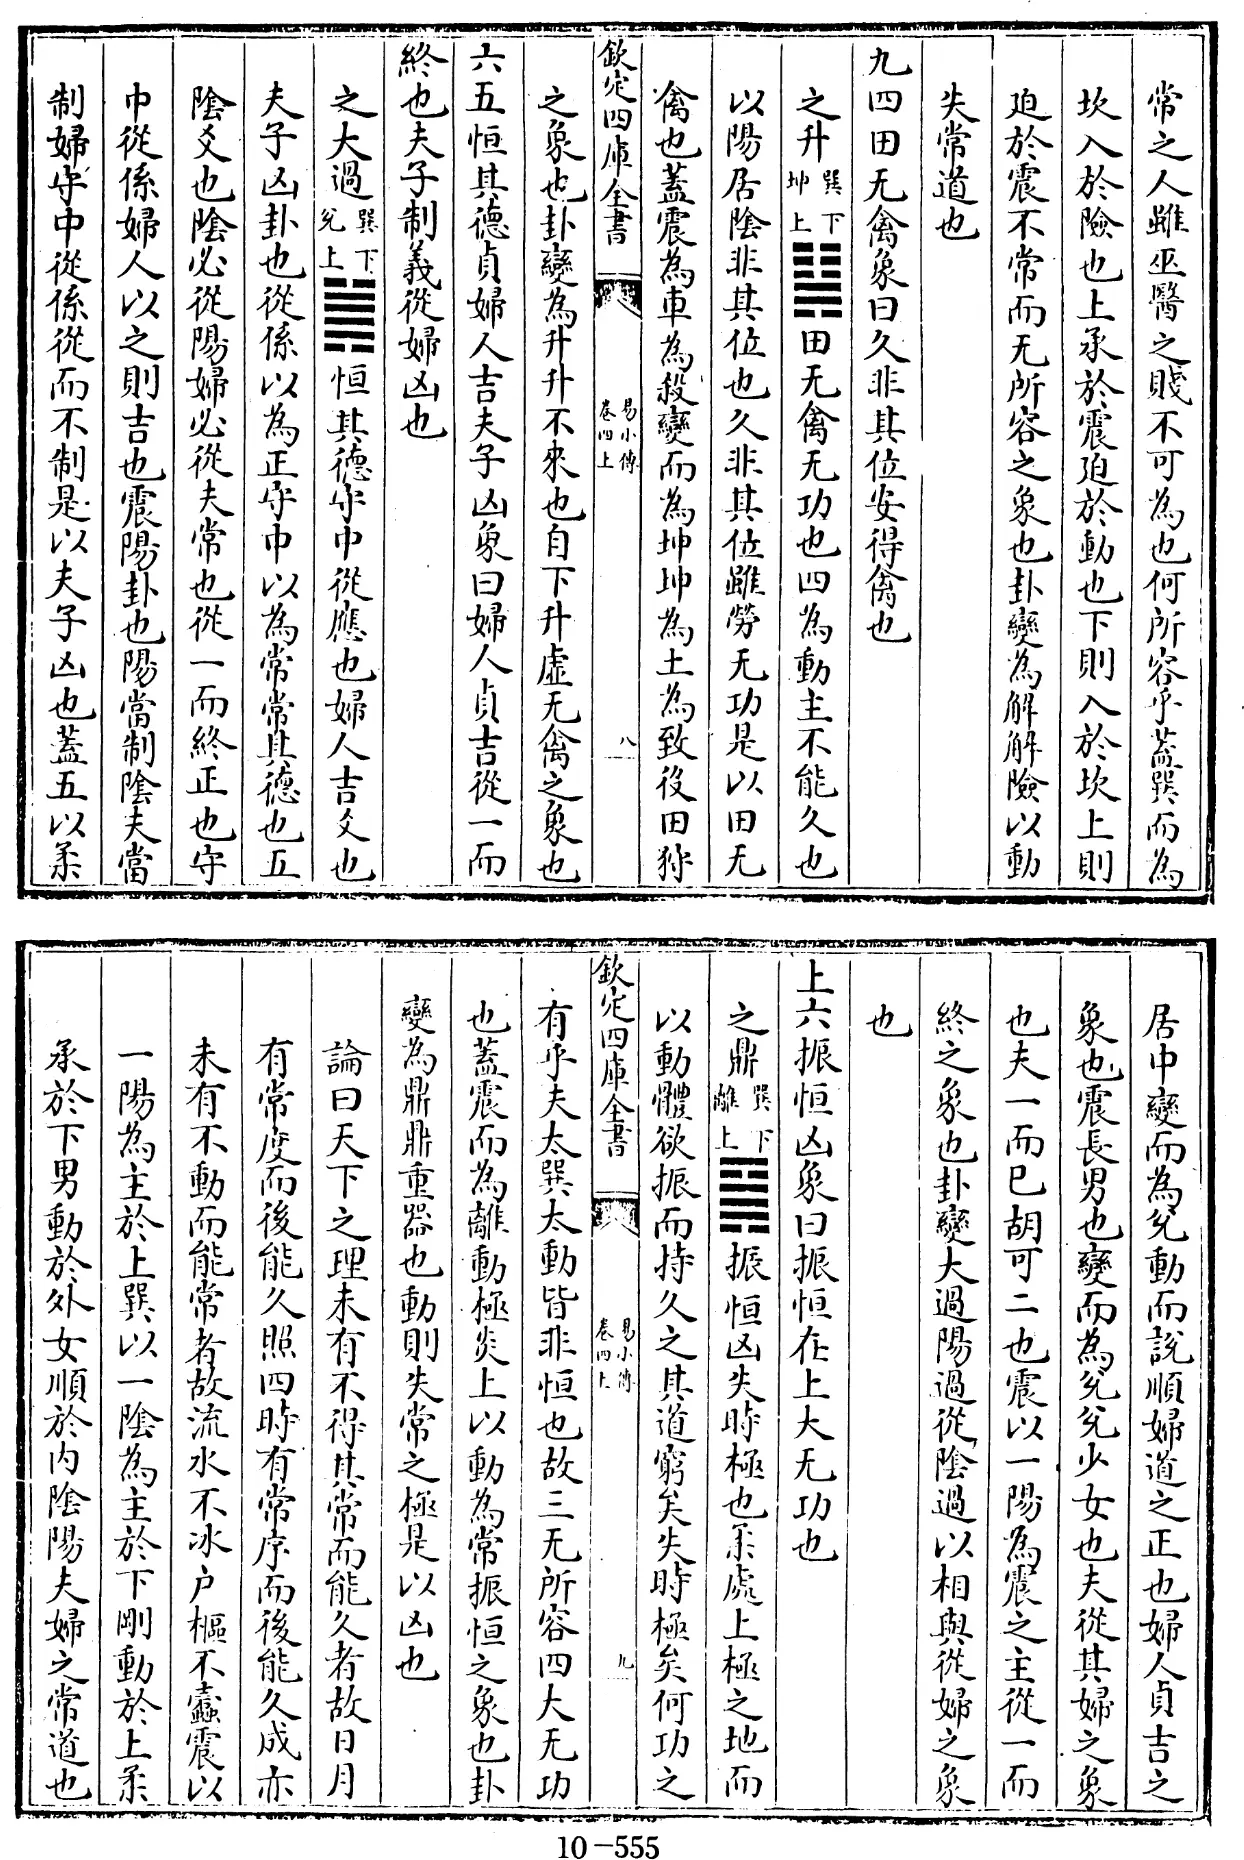 常之人雖巫醫之賤不可為也何所容乎蓋巽而為
坎入於險也上承於震廹於動也下則入於坎上則
廹於震不常而无所容之象也卦變為解解險以動
失常道也
九四田无禽象曰久非其位安得禽也
之升巽下坤上䷭田无禽无功也四為動主不能久也
以陽居陰非其位也久非其位雖勞无功是以田无
禽也蓋震為車為殺變而為坤坤為土為致役田狩
欽定四庫全書
易小傳
卷四上
八
之象也卦變為升升不來也自下升虛无禽之象也
六五恒其德貞婦人吉夫子凶象曰婦人貞吉從一而
終也夫子制義從婦凶也
之大過巽下兌上䷛恒其德守中從應也婦人吉爻也
夫子凶卦也從係以為正守中以為常常其德也五
陰爻也陰必從陽婦必從夫常也從一而終正也守
中從係婦人以之則吉也震陽卦也陽當制陰夫當
制婦守中從係從而不制是以夫子凶也蓋五以柔
居中變而為兌動而說順婦道之正也婦人貞吉之
象也震長男也變而為兌兌少女也夫從其婦之象
也夫一而已胡可二也震以一陽為震之主從一而
終之象也卦變大過陽過從陰過以相與從婦之象
也
上六振恒凶象曰振恒在上大无功也
之鼎巽下離上䷱振恒凶失時極也柔處上極之地而
以動體欲振而持久之其道窮矣失時極矣何功之
欽定四庫全書
易小傳
卷四上
九
有乎夫太巽太動皆非恒也故三无所容四大无功
也蓋震而為離動極炎上以動為常振恒之象也卦
變為鼎鼎重器也動則失常之極是以凶也
論曰天下之理未有不得其常而能久者故日月
有常度而後能久照四時有常序而後能久成亦
未有不動而能常者故流水不冰户樞不蠹震以
一陽為主於上巽以一陰為主於下剛動於上柔
承於下男動於外女順於内陰陽夫婦之常道也
10-555